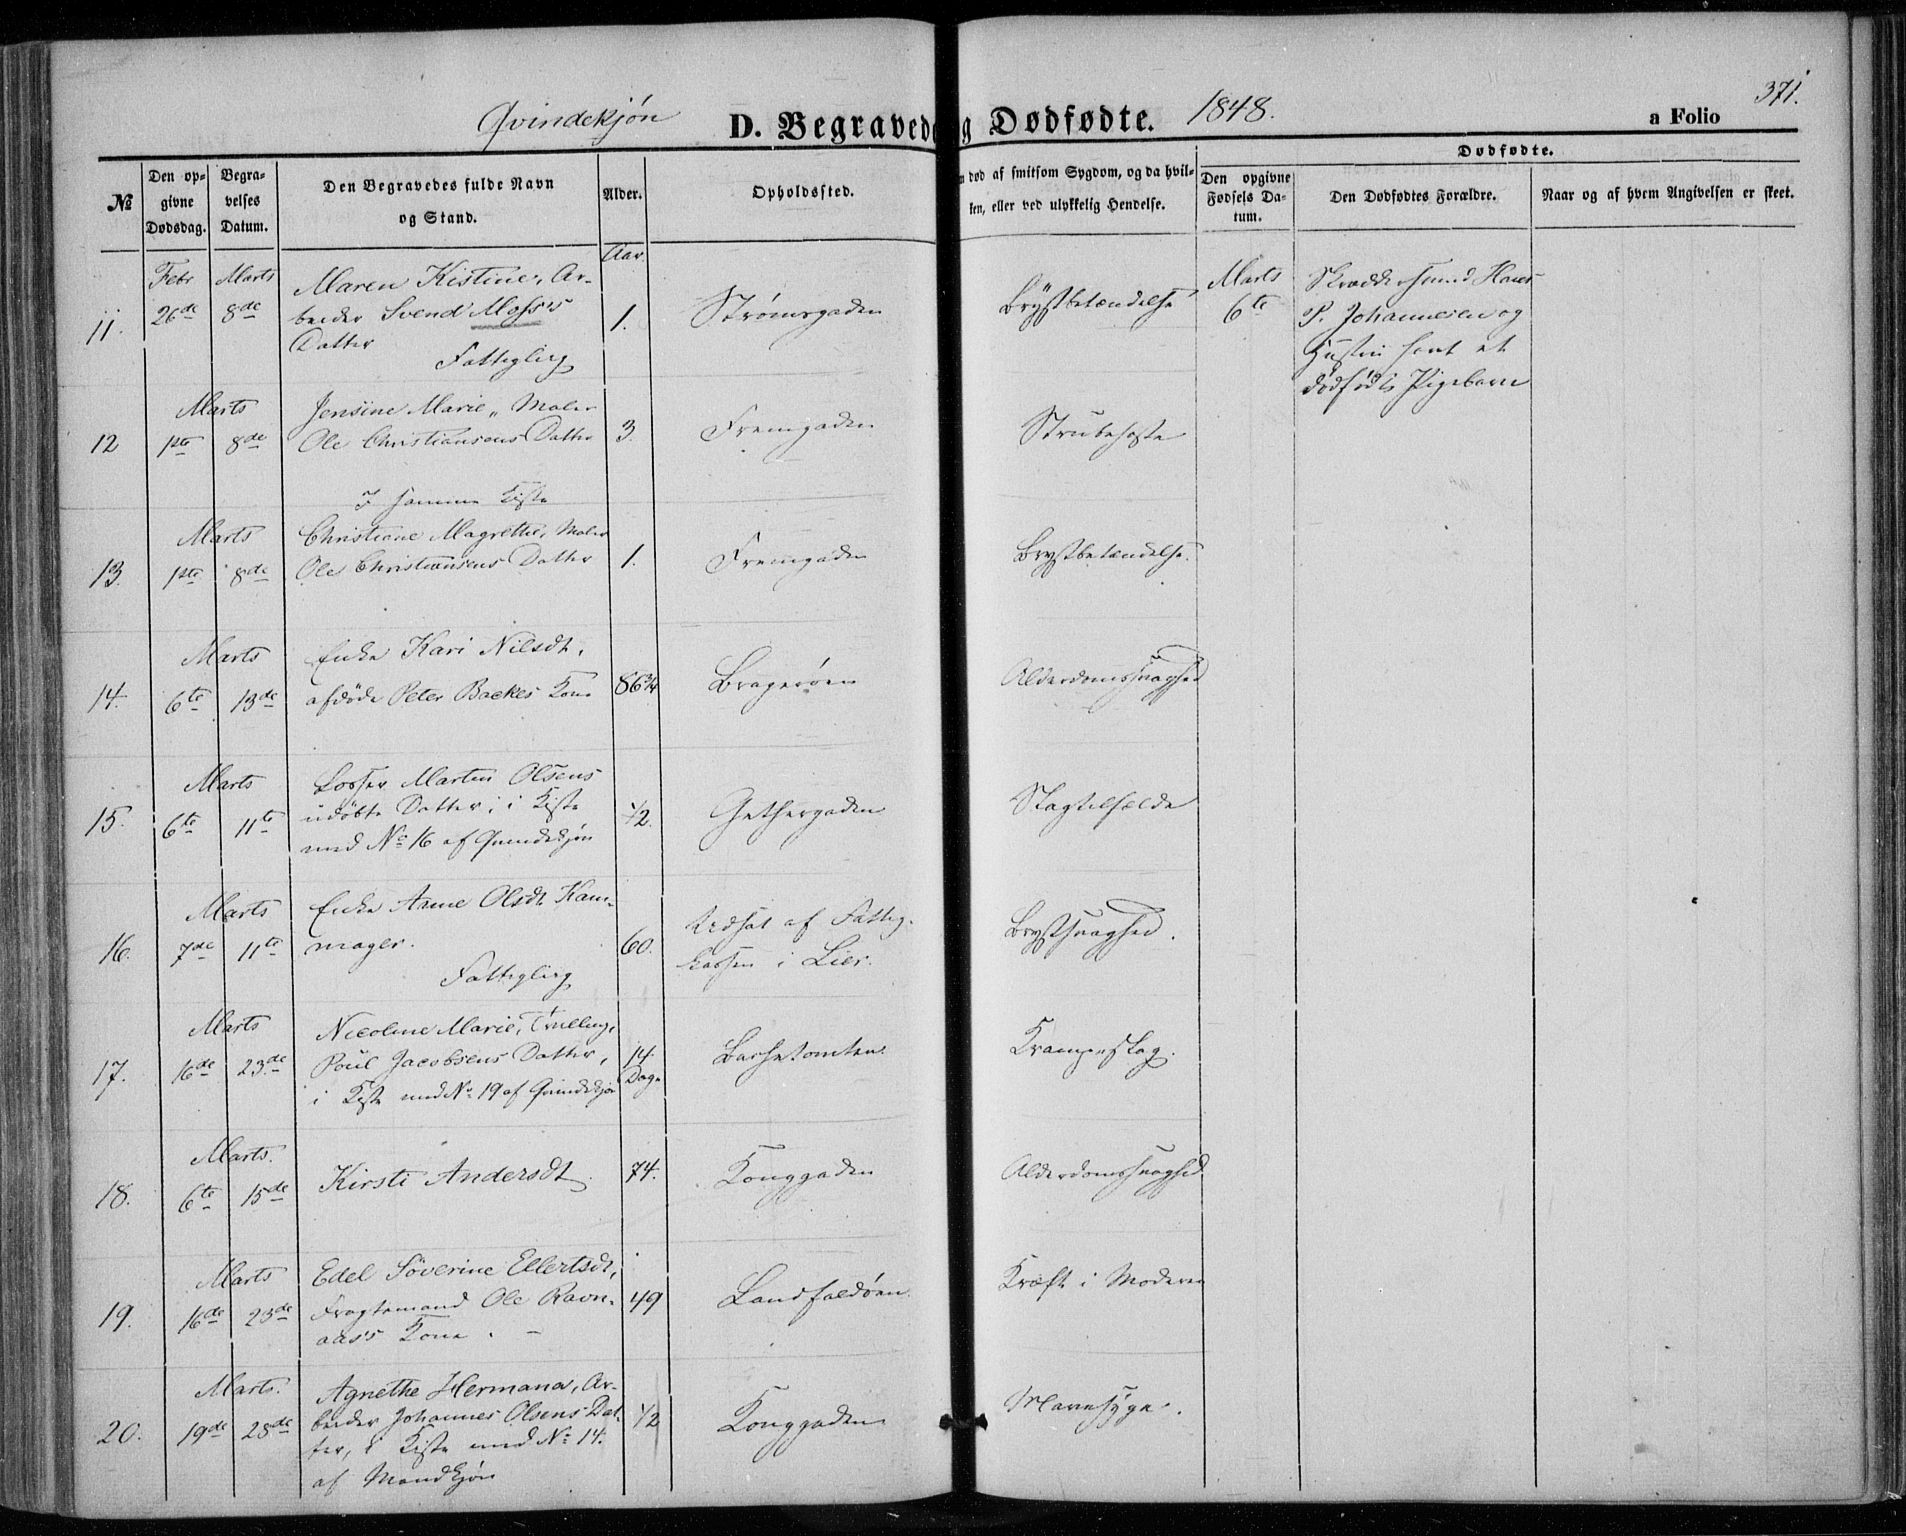 Qvindekjøn
D. Begravede og Dødfødte.
1848.
a Folio
371.
№
Den op-
givne
Dødsdag.
Begra-
velses
Datum.
Den Begravedes fulde Navn
og Stand.
Alder.
Opholdssted.
død af smitsom Sygdom, og da hvil-
ken, eller ved ulykkelig Hendelse.
Dødfødte.
Den opgivne
Fødsels Da-
tum.
Den Dødfødtes Forældre.
Naar og af hvem Angivelsen er skeet.
Aar.
11.
Febr
26de
Marts
8de
Maren Kistine, Ar-
beider Svend Moss's
Datter
Fattiglig
1.
Strømsgaden
Brystbetændelse
Marts
6te
Skræddersvend Hans
P. Johannesen og
Hustru havt et
dødfødt Pigebarn
12
Marts
1ste
8de
Jensine Marie, Maler
Ole Christiansens Datter
3.
Fremgaden
Strubehoste
I samme Kiste
13.
Marts
1ste
8de
Christiane Magrethe, Maler
Ole Christiansens Datter
1.
Fremgaden
Brystbetændelse.
14.
Marts
6te
13de
Enke Kari Nilsdt,
afdöde Peter Backes Kone
86¾
Bragerøen
Alderdomssvaghed
15.
Marts
6te
11te
Losser Martin Olsens
udöbte Datter; i Kiste
med No 16 af Qvindekjøn
½.
Gethergaden
Slagtilfælde
16.
Marts
7de
11te
Enke Anne Olsdt Kam-
mager.
Fattiglig
60.
Udsat af Fattig-
kassen i Lier.
Brystsvaghed.
17.
Marts
16de
23de
Nicoline Marie, Trilling,
Poul Jacobsens Datter,
i Kiste med No 19 af Qvindekjøn
14
Dage
Krampeslag.
18.
Marts.
6te
15de
Kirsti Andersdt.
74.
Konggaden
Alderdomssvaghed
19.
Marts
16de
23de
Edel Söverine Ellertsdt,
Fragtemand Ole Ravn-
aas's Kone. -
49
Landfaldøen.
Kræft i Moderen
20.
Marts.
19de
28de
Agnethe Hermana, Ar-
beider Johannes Olsens Dat-
ter, i Kiste med No 14.
af Mandkjøn
½
Konggaden
Mavesyge.